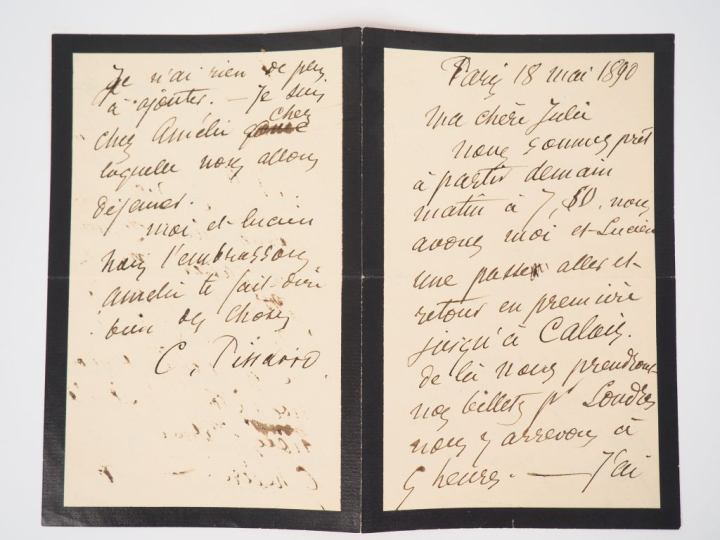 Paris 18 mai 1890
ma chère Julie
nous sommes prêt
à partir demain
matin à 7,50. nous
avons moi et Lucien
une passe aller et
retour en première
jusqu'à Calais.
de là nous prendrons
nos billets pr Londres
nous y arrivons à
5 heures. — J'ai
Je n'ai rien de
à ajouter. — Je suis
chez Amélie chez
laquelle nous allons
déjeuner.
moi et Lucien
nous t'embrassons
Amélie te fait dire
bien des choses
C. Pissarro